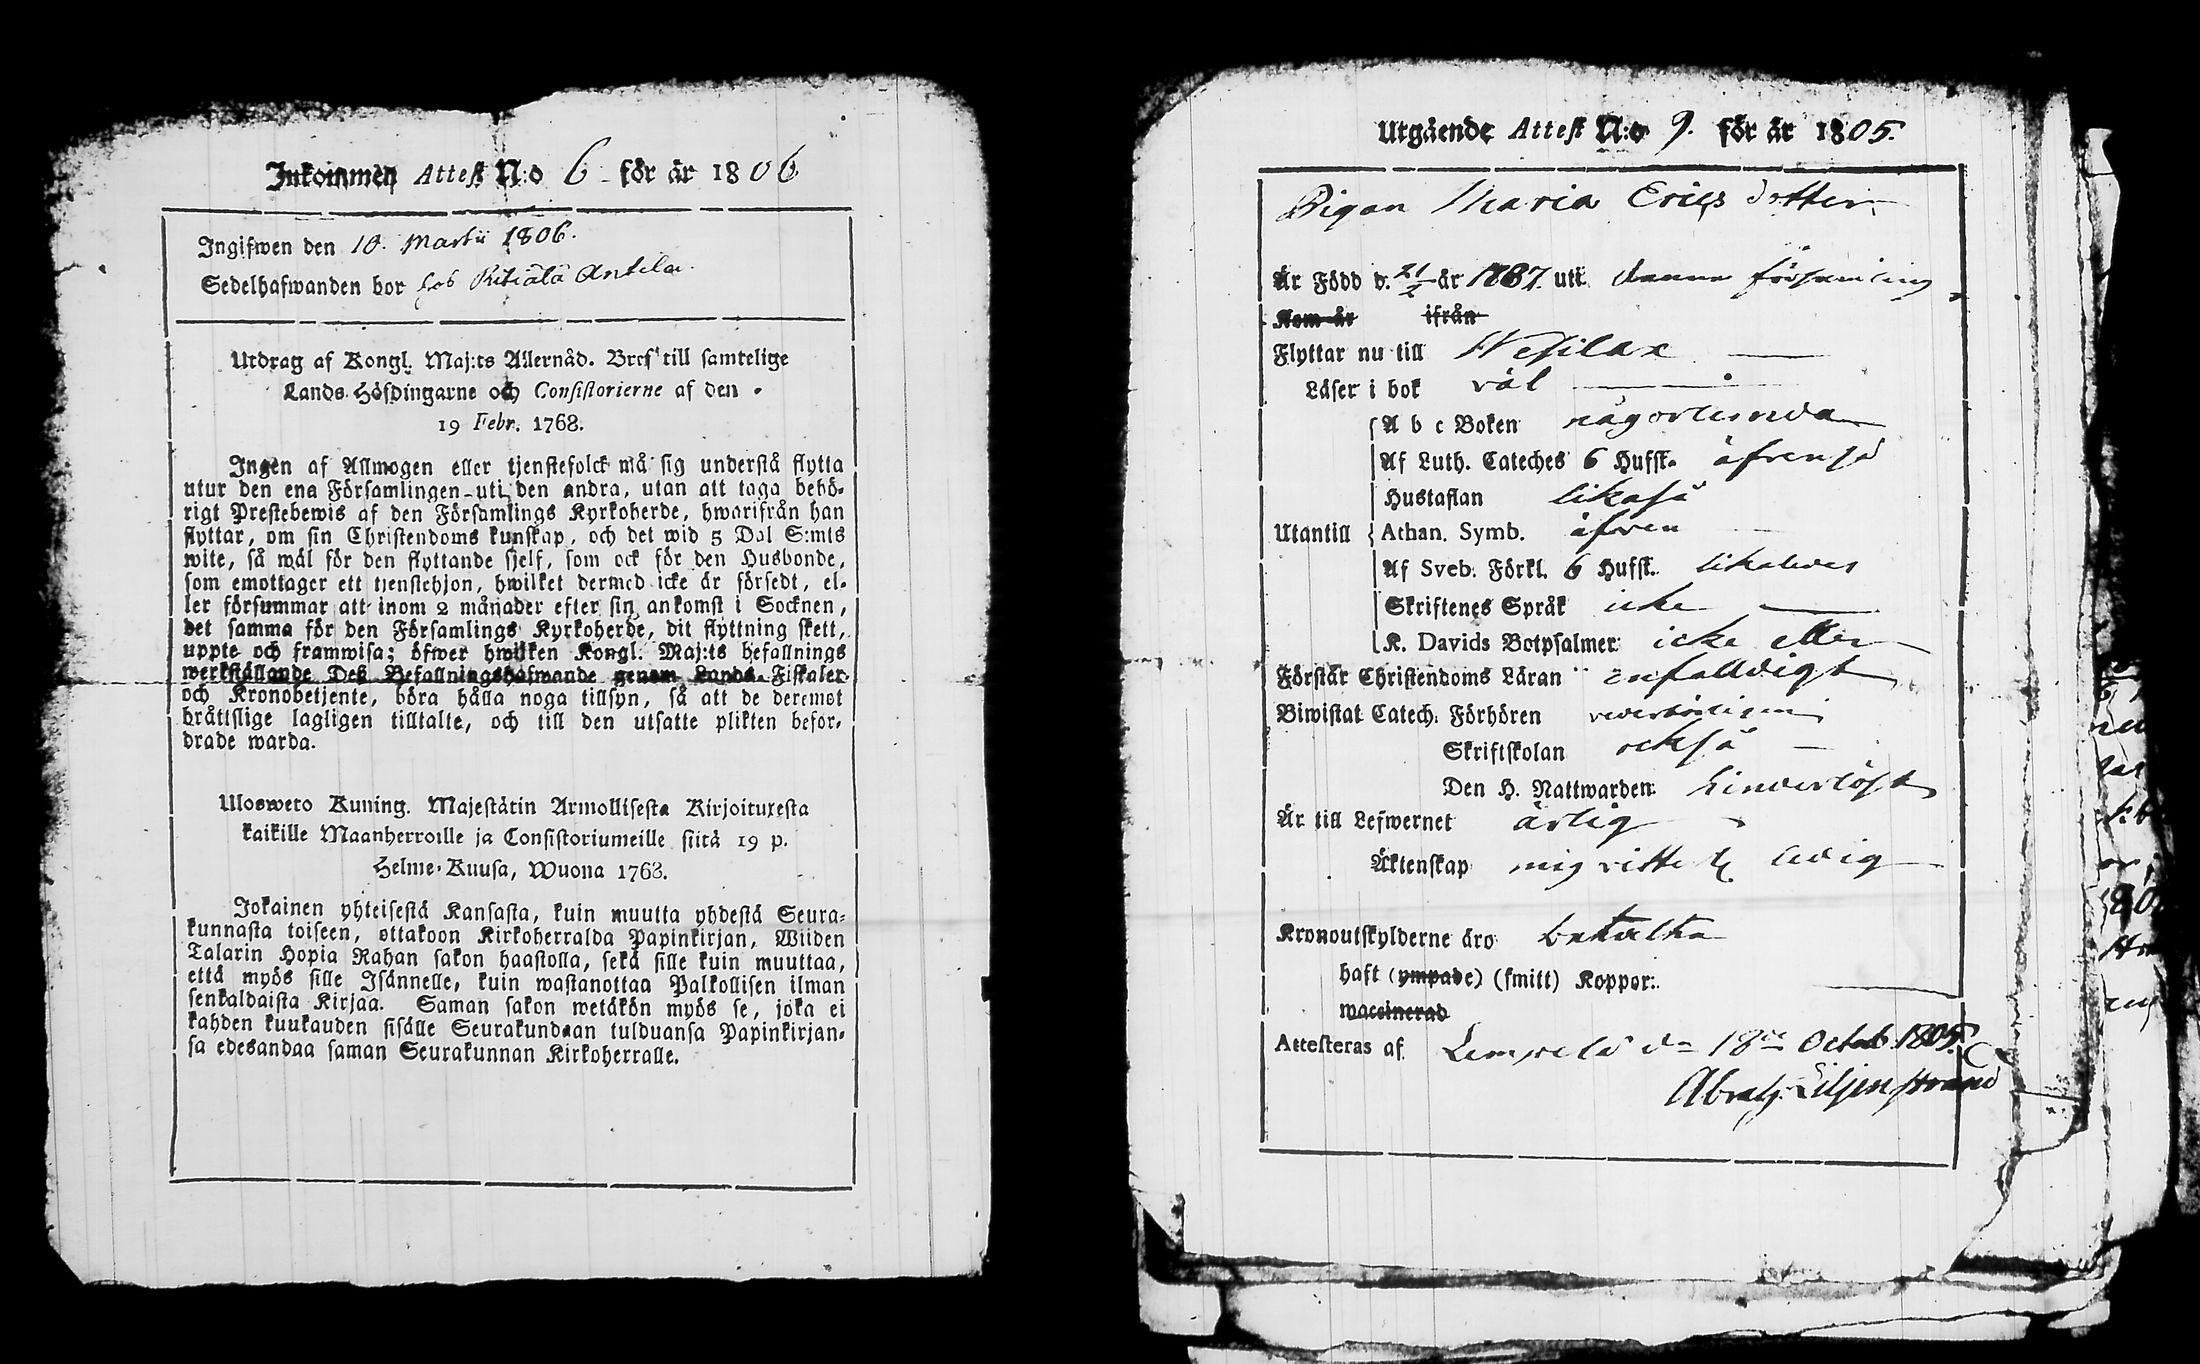 Inkommen Attest N:o 6 för år 1806
Ingifwen den 10. Martii 1806.
Sedelhafwanden bor hos Antila
Utdrag af Kongl. Maj:ts Allernåd. Bref till samtelige
Lands Höfdingarne och Consistorierne af den
19 Febr. 1768.
Ingen af Allmogen eller tjenstefolck må sig understå flytta
utur den ena Församlingen uti den andra, utan att taga behö-
rigt Prestebewis af den Församlings Kyrkoherde, hwarifrån han
flyttar, om sin Christendoms kunskap, och det wid 5 Dal S:mts
wite, så wäl för den flyttande sjelf, som ock för den Husbonde,
som emottager ett tjenstehjon, hwilket dermed icke är försedt, el-
ler försummar att inom 2 månader efter sin ankomst i Socknen,
det samma för den Församlings Kyrkoherde, dit flyttning skett,
uppte och framwisa; öfwer hwilken Kongl. Maj:ts befallnings
werkställande Deß Befallningshafwande genom Lands Fiskaler
och Kronobetjente, böra hålla noga tillsyn, så att de deremot
bråttslige lagligen tilltalte, och till den utsatte plikten befor-
drade warda.
Ulosweto Kuning. Majestätin Armollisesta Kirjoituxesta
kaikille Maanherroille ja Consistoriumeille siitä 19 p.
Helme-Kuusa, Wuona 1768.
Jokainen yhteisestä Kansasta, kuin muutta yhdestä Seura-
kunnasta toiseen, ottakoon Kirkoherralda Papinkirjan, Wiiden
Talarin Hopia Rahan sakon haastolla, sekä sille kuin muuttaa,
että myös sille Isännelle, kuin wastanottaa Palkollisen ilman
senkaldaista Kirjaa. Saman sakon wetäkön myös se, joka ei
kahden kuukauden sisälle Seurakundaan tulduansa Papinkirjan-
sa edesandaa saman Seurakunnan Kirkoherralle.
Utgående Attest N:o 9. för år 1805.
Pigan Maria Ericsdotter
Är Född d. 21/2 år uti denna församling
Kom år ifrån
Flyttar nu till Wesilax
Läser i bok väl
A b c Boken någorlunda
Af Luth. Cateches 6 Hufst. äfven så
Hustaflan likaså
Utantill Athan. Symb. äfven
Af Sveb. Förkl. 6 Hufst. likaledes
Skriftenes Språk icke
K. Davids Botpsalmer icke eller
Förstår Christendoms Läran enfalldigt
Biwistat Catech. Förhören
Skriftskolan också
Den H. Nattwarden hinderlöst
Är till Lefwernet ärlig
Äktenskap mig vitte l. ledig
Kronoutskylderne äro betalta
haft (ympade) (smitt) Koppor.
waccinerad
Attesteras af Lempelä d. 18de Octob. 1805.
Abrah. Liljenstrand